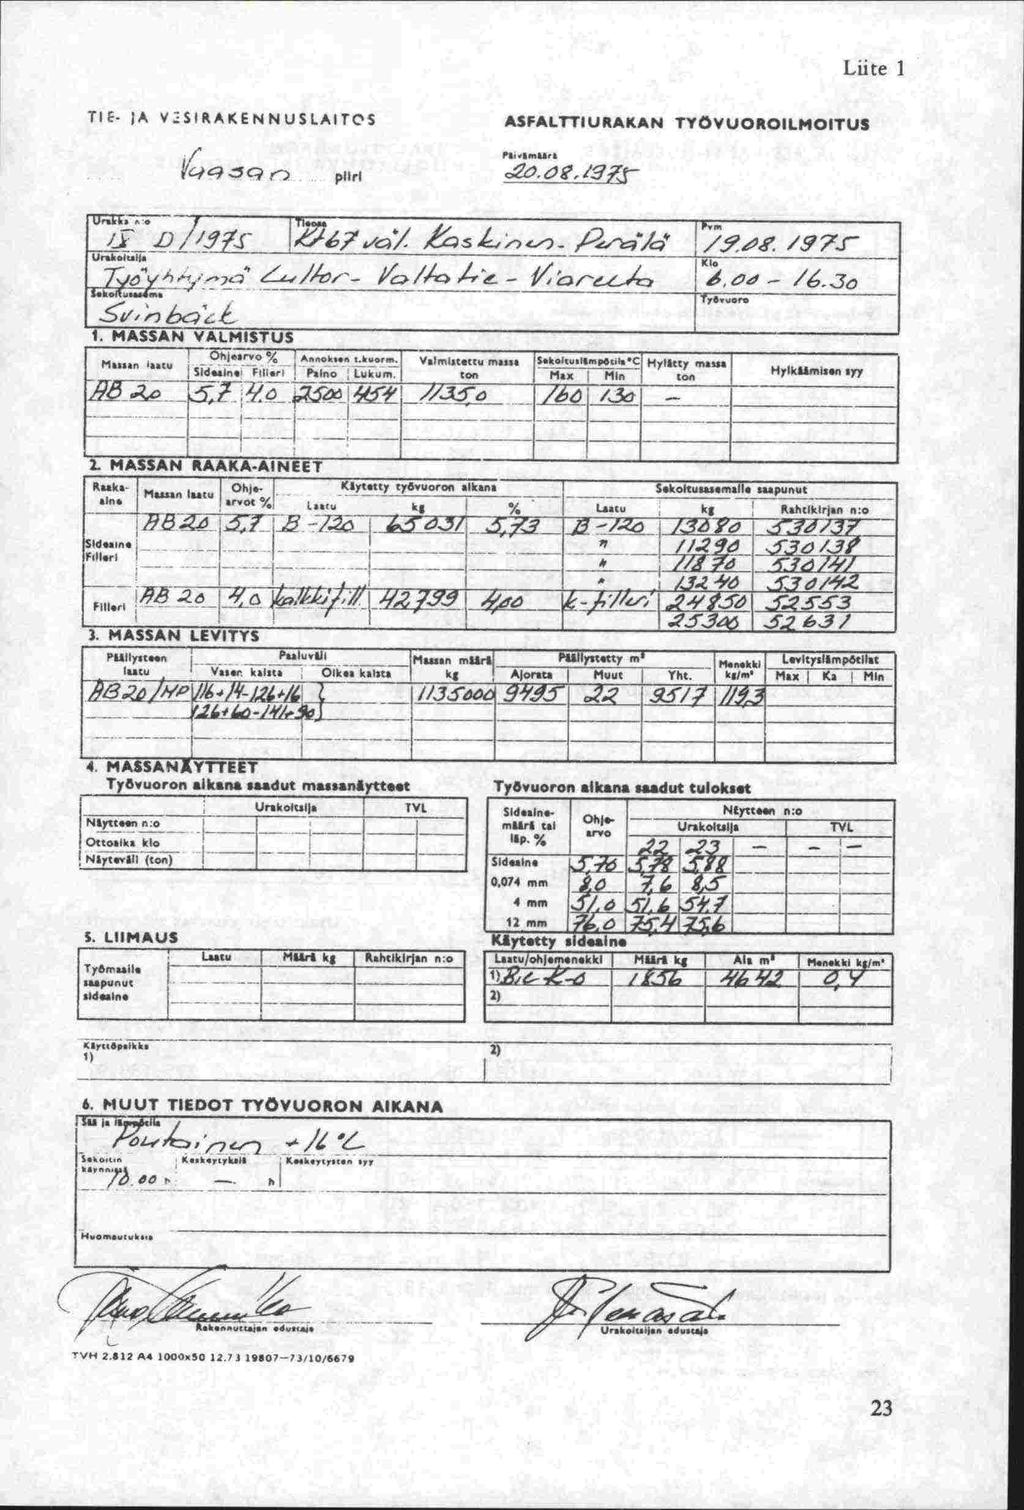 Liite 1
TIE- JA VESIRAKENNUSLAITOS
ASFALTTIURAKAN TYÖVUOROILMOITUS
Vaasan piiri
Päivämäärä
20.08.1975
Urakka n:o
Tieosa
Pvm
IX D/1975 Kt 67 väl. Kaskinen-Perälä 19.08.1975
Urakoitsija
Klo
Työyhtymä Lultor-Valtatie-Viarecta 6.00 - 16.30
Sekoitusasema
Työvuoro
Svinbäck
1. MASSAN VALMISTUS
Massan laatu Ohjearvo % Annoksen t.kuorm. Valmistettu massa Sekoituslämpötila °C Hylätty massa Hylkäämisen syy
Sideaine Filleri Paino Lukum. ton Max Min ton
AB 20 5,7 4.0 2500 454 1135,0 160 130 —
2. MASSAN RAAKA-AINEET
Raaka-aine Massan laatu Ohjearvot % Käytetty työvuoron aikana Sekoitusasemalle saapunut
Laatu kg % Laatu kg Rahtikirjan n:o
AB 20 5,7 B-120 65031 5,73 B-120 13080 530137
Sideaine " 11290 530138
Filleri " 11870 530141
" 13240 530142
Filleri AB 20 4,0 kalkkifill. 42799 4,00 k-filleri 24850 52553
25300 52631
3. MASSAN LEVITYS
Päällysteen laatu Paaluväli Massan määrä Päällystetty m² Menekki Levityslämpötilat
Vasen kaista Oikea kaista kg Ajorata Muut Yht. kg/m² Max Ka Min
AB20/HP 116+14-126+16 } 1135000 9495 22 9517 119,3
126+60-141+90 }
4. MASSANÄYTTEET
Työvuoron aikana saadut massanäytteet
Urakoitsija TVL
Näytteen n:o
Ottoaika klo
Näyteväli (ton)
Työvuoron aikana saadut tulokset
Sideainemäärä tai läp. % Ohjearvo Näytteen n:o
Urakoitsija TVL
22 23 — —
Sideaine 5,76 5,78 5,88
0,074 mm 8,0 7,6 8,5
4 mm 51,0 51,6 54,7
12 mm 76,0 75,4 75,6
5. LIIMAUS
Laatu Määrä kg Rahtikirjan n:o
Työmaalle saapunut sideaine
Käytetty sideaine
Laatu/ohjemenekki Määrä kg Ala m² Menekki kg/m²
1) BiL K-0 1856 4642 0,4
2)
Käyttöpaikka
1) 2)
6. MUUT TIEDOT TYÖVUORON AIKANA
Sää ja lämpötila
Poutainen +16°C
Sekoitin käynnissä Keskeytyksiä Keskeytysten syy
10.00 h — h
Huomautuksia
Rakennuttajan edustaja
Urakoitsijan edustaja
TVH 2.812 A4 1000x50 12.73 19807—73/10/6679
23